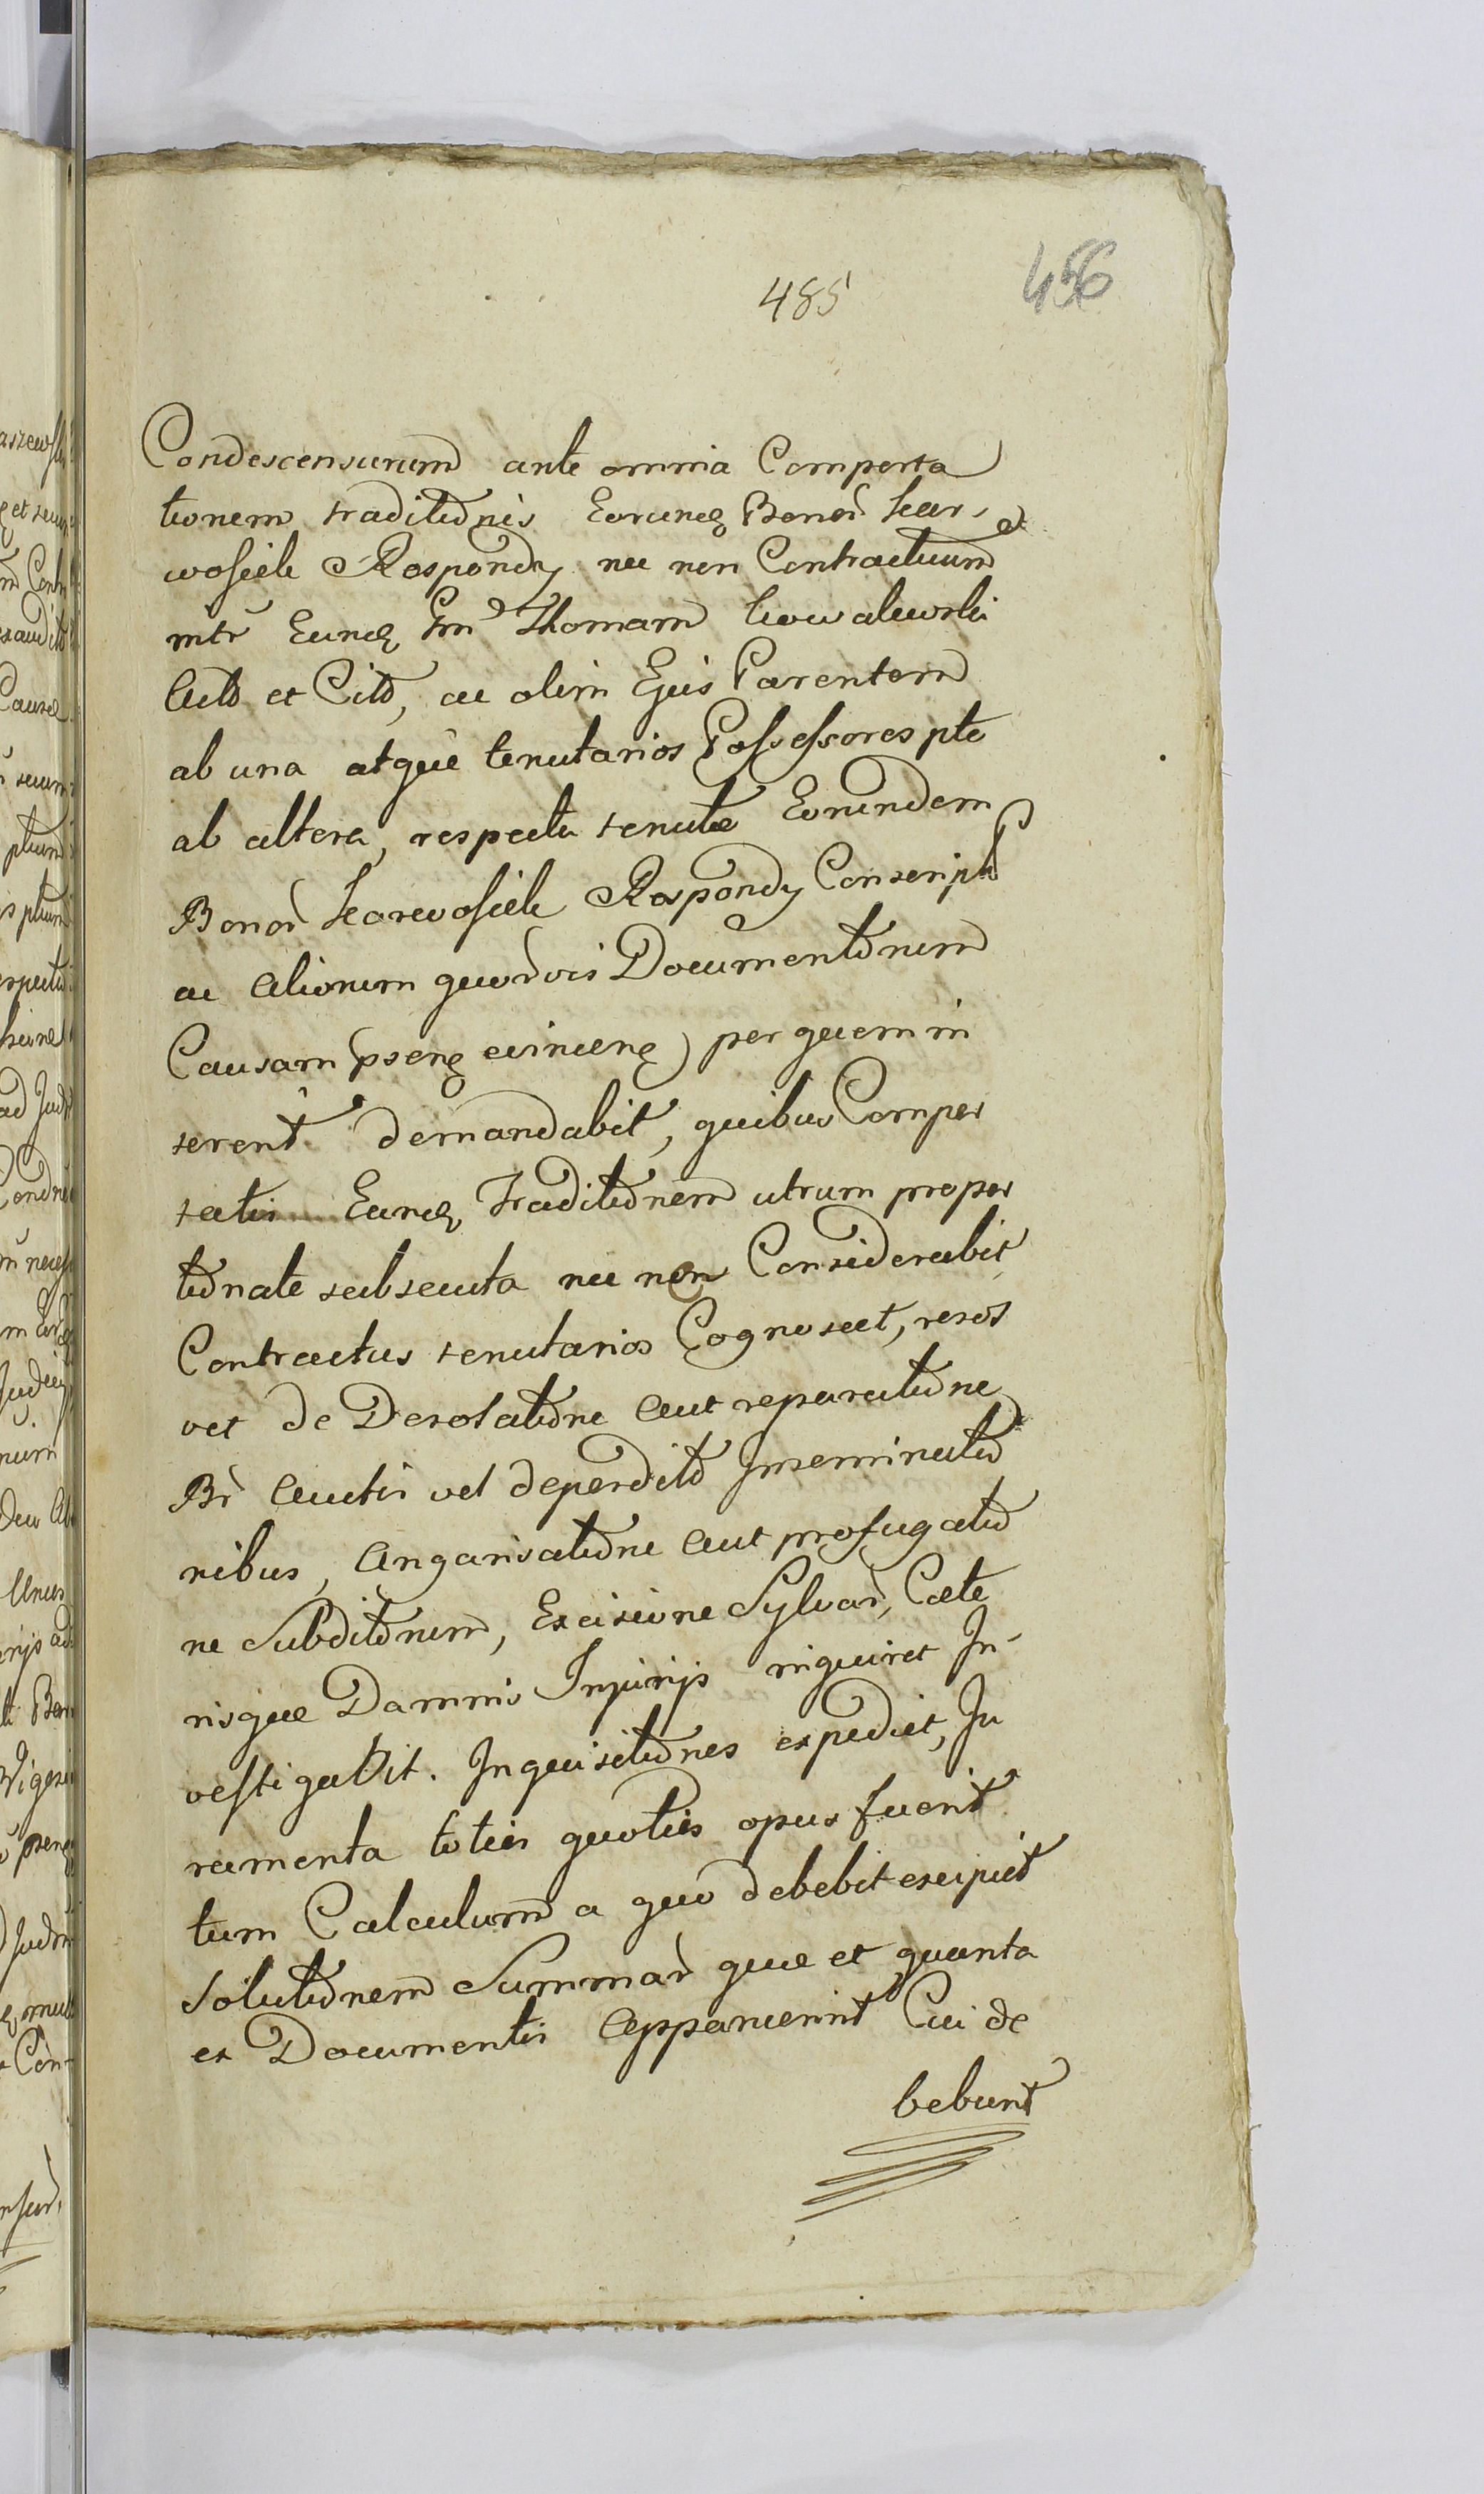 485
456
Condescensurum ante omnia Comporta
tionem traditionis Eorund Bonor Kar,
wosiele Rospondy nec non Contractuum
intr Eund Gm Thomam Kowalewski
Act et Cit, ac olim Ejus Parentem
ab una atque tenutarios Possessores pte
ab altera, respectu tenutæ Eorundem
Bonor Karwosiele Rospondy Conscript
ac Aliorum quorvis Documentorum
Causam psen evincen, per quem in
serent demandabit, quibus Compor
tatis Eand Traditionem utrum propor
tionate subsecuta nec non Considerabit
Contractus tenutarios Cognoscet, resol
vet de Desolatione Aut reparatione
Br Auctis vel deperdit Inseminatio
nibus, Angarisatione Aut profugatio
ne Subditorum, Excisione Sylvar, Cæte
risque Damnis Injurijs inquiret In
vestigabit. Inquisitiones expediet, Ju
ramenta toties quoties opus fuerit
tum Calculum a quo debebit excipiet
solutionem Summar quæ et quanta
ex Documentis Apparuerint Cui de
bebunt